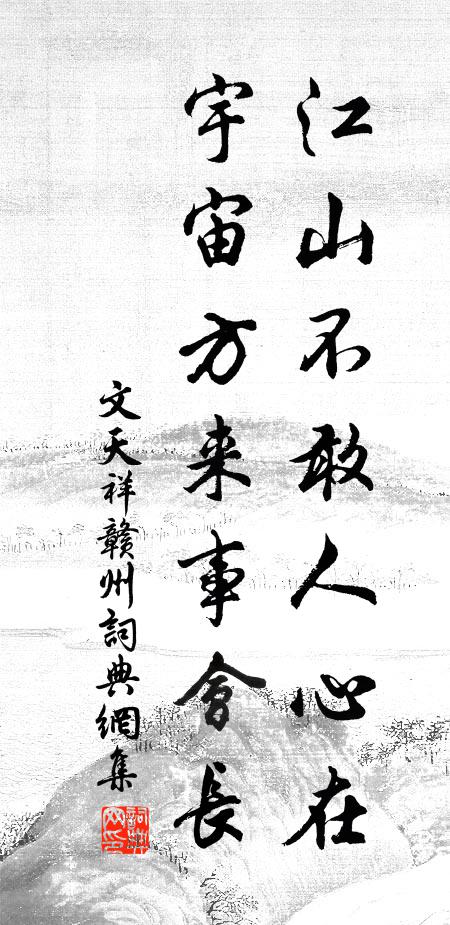 江山不敢人心在
宇宙方来事會長
文天祥贛州詞典網集